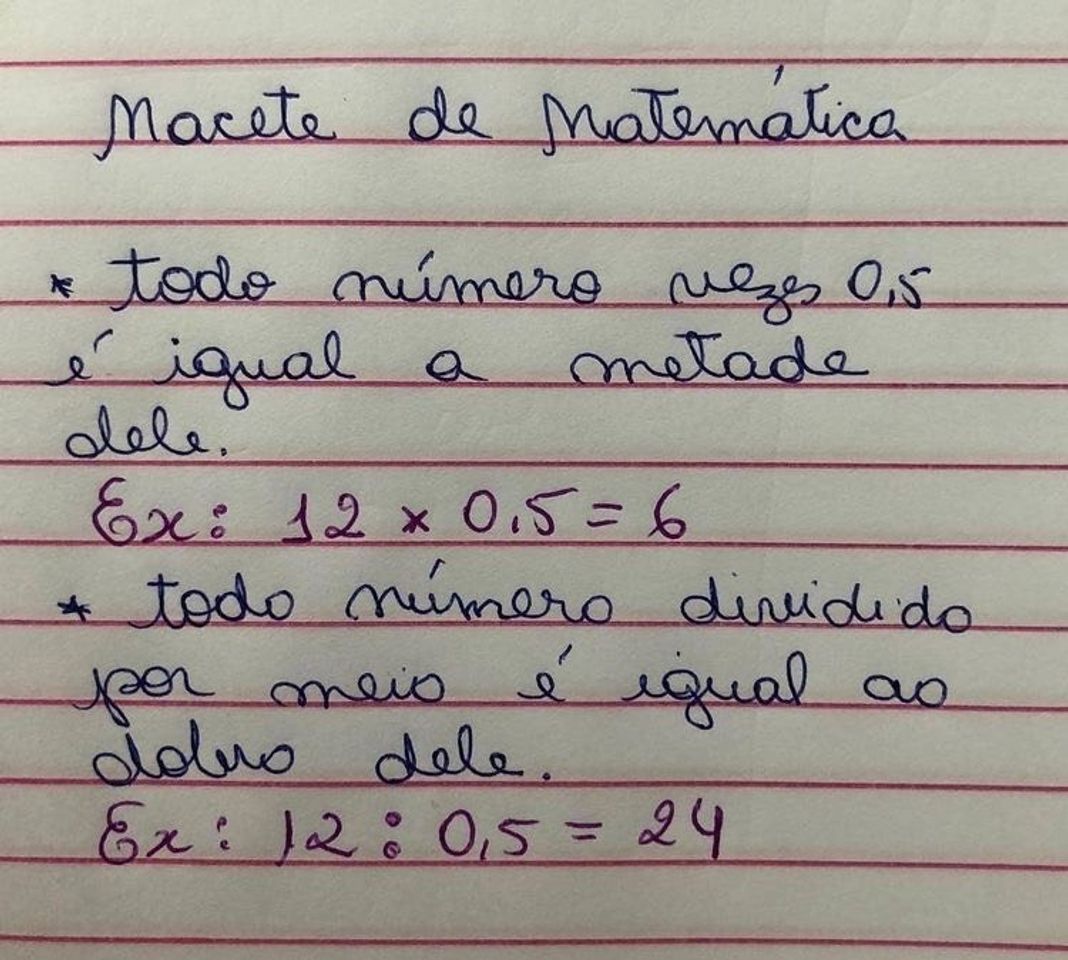 Macete de Matemática
* todo número vezes 0,5
é igual a metade
dele.
Ex: 12 x 0,5 = 6
* todo número dividido
por meio é igual ao
dobro dele.
Ex: 12 : 0,5 = 24